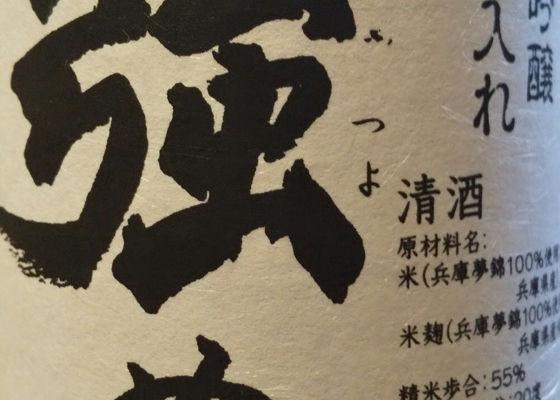 吟醸
入れ
つよ
強
清酒
原材料名:
米(兵庫夢錦100%使用
兵庫県産
米麹(兵庫夢錦100%使
兵庫県産
精米歩合:55%